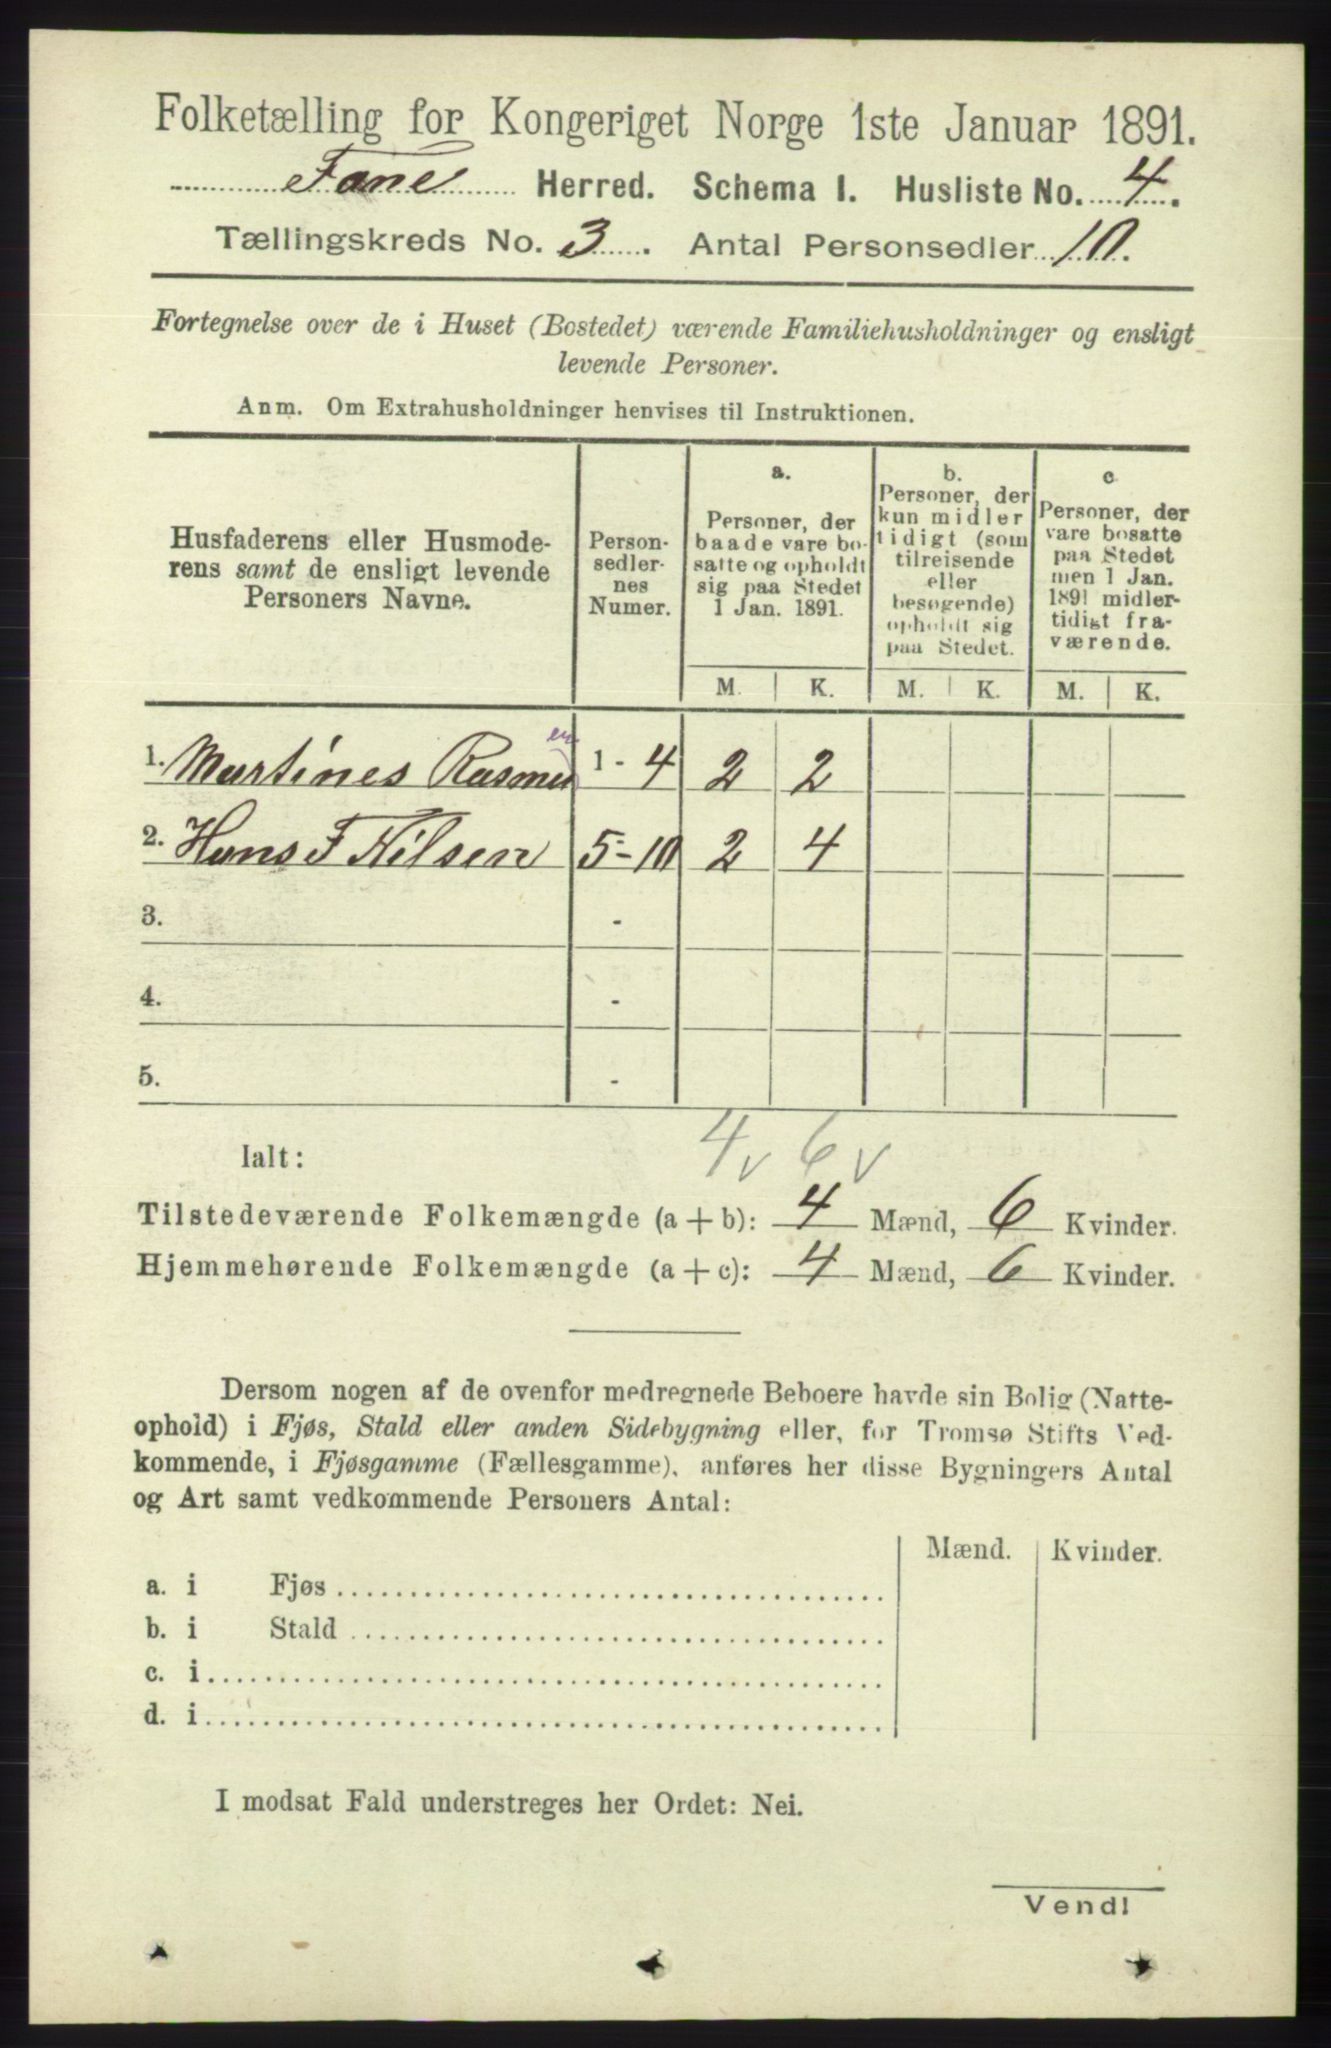 Folketælling for Kongeriget Norge 1ste Januar 1891.
Fane Herred. Schema I. Husliste No. 4.
Tællingskreds No. 3. Antal Personsedler 10.
Fortegnelse over de i Huset (Bostedet) værende Familiehusholdninger og ensligt
levende Personer.
Anm. Om Extrahusholdninger henvises til Instruktionen.
Husfaderens eller Husmode-
rens samt de ensligt levende
Personers Navne.
Person-
sedler-
nes
Numer.
a.
Personer, der
baade vare bo-
satte og opholdt
sig paa Stedet
1 Jan. 1891.
b.
Personer, der
kun midler
tidigt (som
tilreisende
eller
besøgende)
opholdt sig
paa Stedet.
c
Personer, der
vare bosatte
paa Stedet
men 1 Jan.
1891 midler-
tidigt fra-
værende.
M. K. M. K. M. K.
1. Martines Rasmus en 1 - 4 2 2
2. Hans F Nilsen 5-10 2 4
3. -
4. -
5. -
4 v 6 v
Ialt:
Tilstedeværende Folkemængde (a + b): 4 Mænd, 6 Kvinder.
Hjemmehørende Folkemængde (a + c): 4 Mænd, 6 Kvinder.
Dersom nogen af de ovenfor medregnede Beboere havde sin Bolig (Natte-
ophold) i Fjøs, Stald eller anden Sidebygning eller, for Tromsø Stifts Ved-
kommende, i Fjøsgamme (Fællesgamme), anføres her disse Bygningers Antal
og Art samt vedkommende Personers Antal:
Mænd. Kvinder.
a. i Fjøs
b. i Stald
c. i
d. i
I modsat Fald understreges her Ordet: Nei.
Vend!